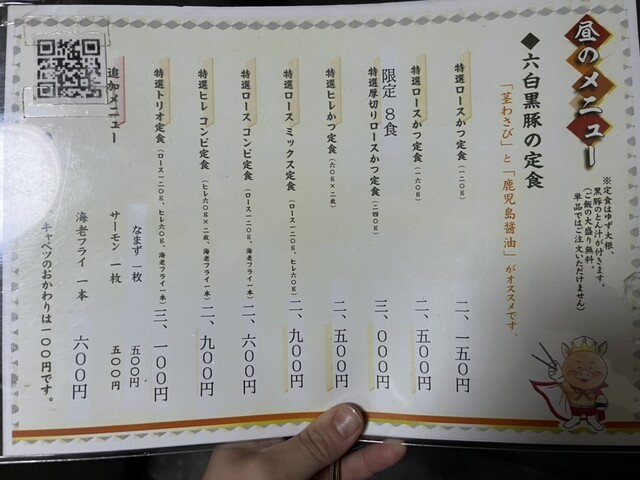 昼のメニュー
※定食はゆず大根、
黒豚のとん汁が付きます。
(ご飯の大盛り無料、
単品ではご注文いただけません)
◆六白黒豚の定食
「茎わさび」と「鹿児島醤油」がオススメです。
特選ロースかつ定食(一二〇g) 二、一五〇円
特選ロースかつ定食(一六〇g) 二、五〇〇円
限定 8食
特選厚切りロースかつ定食(二四〇g) 三、〇〇〇円
特選ヒレかつ定食(六〇g×二枚) 二、五〇〇円
特選ロース ミックス定食(ロース一二〇g、ヒレ六〇g) 二、九〇〇円
特選ロース コンビ定食(ロース一二〇g、海老フライ一本) 二、六〇〇円
特選ヒレ コンビ定食(ヒレ六〇g×二枚、海老フライ一本) 二、九〇〇円
特選トリオ定食(ロース一二〇g、ヒレ六〇g、海老フライ一本) 三、一〇〇円
追加メニュー
なまず 一枚 五〇〇円
サーモン 一枚 五〇〇円
海老フライ 一本 六〇〇円
キャベツのおかわりは一〇〇円です。